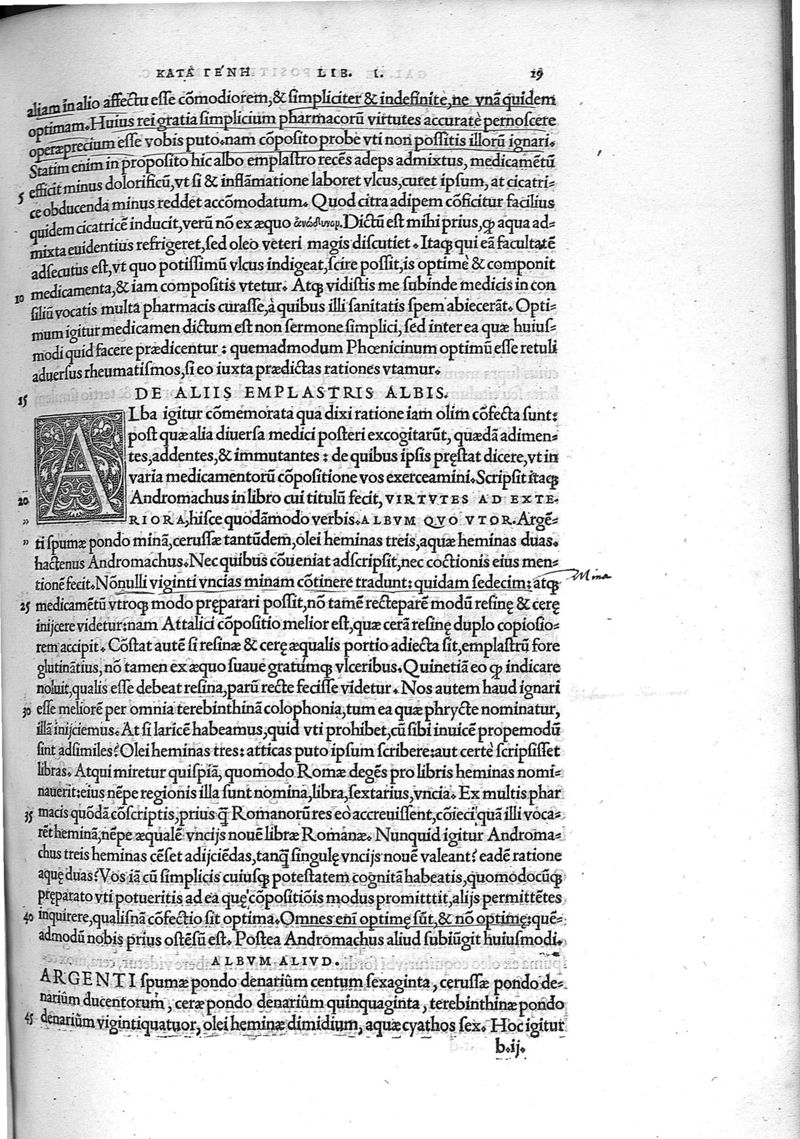 ΚΑΤΑ ΓΕΝΗ LIB. I. 19
aliam in alio affectu esse cõmodiorem,& simpliciter & indefinite,ne vnã quidem
optimam.Huius rei gratia simplicium pharmacorũ virtutes accuratè pernoscere
operæprecium esse vobis puto.nam cõposito probe vti non possitis illorũ ignari.
Statim enim in proposito hic albo emplastro recẽs adeps admixtus, medicamẽtũ
5 efficit minus dolorificũ,vt si & inflãmatione laboret vlcus,curet ipsum, at cicatri-
ce obducenda minus reddet accõmodatum. Quod citra adipem cõficitur facilius
quidem cicatricẽ inducit,verũ nõ ex æquo ἀνώδυνον.Dictũ est mihi prius,ꝙ aqua ad-
mixta euidentius refrigeret,sed oleo veteri magis discutiet. Itaqꝫ qui eã facultatẽ
adsecutus est,vt quo potissimũ vlcus indigeat,scire possit,is optimè & componit
10 medicamenta,& iam compositis vtetur. Atqꝫ vidistis me subinde medicis in con
siliũ vocatis multa pharmacis curasse,à quibus illi sanitatis spem abiecerãt. Opti-
mum igitur medicamen dictum est non sermone simplici, sed inter ea quæ huius-
modi quid facere prædicentur: quemadmodum Phœnicinum optimũ esse retuli
aduersus rheumatismos,si eo iuxta prædictas rationes vtamur.
15 DE ALIIS EMPLASTRIS ALBIS.
ALba igitur cõmemorata qua dixi ratione iam olim cõfecta sunt:
post quæ alia diuersa medici posteri excogitarũt, quædã adimen-
tes,addentes,& immutantes: de quibus ipsis pręstat dicere,vt in
varia medicamentorũ cõpositione vos exerceamini.Scripsit itaqꝫ
20 Andromachus in libro cui titulũ fecit, VIRTVTES AD EXTE-
„ RIORA,hisce quodãmodo verbis.ALBVM QVO VTOR.Argẽ-
„ ti spumæ pondo minã,cerussæ tantũdem,olei heminas treis,aquæ heminas duas.
hactenus Andromachus.Nec quibus cõueniat adscripsit,nec coctionis eius men-
tionẽ fecit.Nõnulli viginti vncias minam cõtinere tradunt: quidam sedecim: atqꝫ
Mina
25 medicamẽtũ vtroqꝫ modo pręparari possit,nõ tamẽ recteparẽ modũ resinę & cerę
inijcere videtur:nam Attalici cõpositio melior est,quæ cerã resinę duplo copiosio-
rem accipit. Cõstat autẽ si resinæ & cerę æqualis portio adiecta sit,emplastrũ fore
glutinãtius, nõ tamen ex æquo suaue gratumqꝫ vlceribus.Quinetiã eo ꝙ indicare
noluit,qualis esse debeat resina,parũ recte fecisse videtur. Nos autem haud ignari
30 esse meliorẽ per omnia terebinthinã colophonia,tum ea quæ phrycte nominatur,
illã inijciemus. At si laricẽ habeamus,quid vti prohibet,cũ sibi inuicẽ propemodũ
sint adsimiles? Olei heminas tres: atticas puto ipsum scribere: aut certè scripsisset
libras. Atqui miretur quispiã, quomodo Romæ degẽs pro libris heminas nomi-
nauerit:eius nẽpe regionis illa sunt nomina,libra,sextarius,vncia. Ex multis phar
35 macis quõdã cõscriptis,prius ꝗ̃ Romanorũ res eo accreuissent,cõieci,quã illi voca-
rẽt heminã,nẽpe æqualẽ vncijs nouẽ libræ Romanæ. Nunquid igitur Androma-
chus treis heminas cẽset adijciẽdas,tanꝗ̃ singulę vncijs nouẽ valeant? eadẽ ratione
aquę duas? Vos iã cũ simplicis cuiusqꝫ potestatem cognitã habeatis,quomodocũqꝫ
pręparato vti potueritis ad ea quę cõpositiõis modus promitttit,alijs permittẽtes
40 inquirere,qualisnã cõfectio sit optima. Omnes enĩ optimę sũt,& nõ optimę:quẽ-
admodũ nobis prius ostẽsũ est. Postea Andromachus aliud subiũgit huiusmodi.
ALBVM ALIVD.
ARGENTI spumæ pondo denariûm centum sexaginta, cerussæ pondo de-
nariûm ducentorum, ceræ pondo denariûm quinquaginta, terebinthinæ pondo
45 denariûm vigintiquatuor, olei heminæ dimidium, aquæ cyathos sex. Hoc igitur
b.ij.